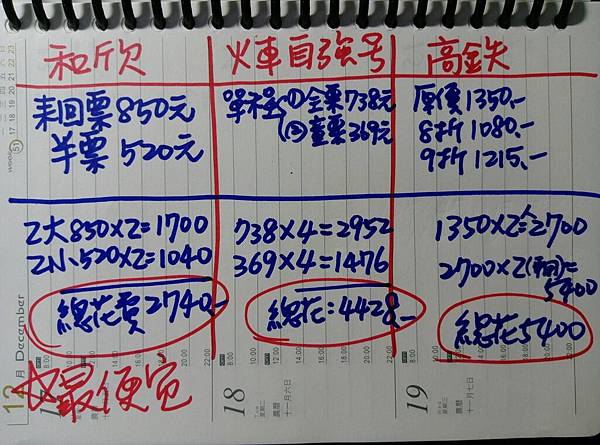 和欣
來回票850元
半票 520元
2大850×2=1700
2小520×2=1040
總花費2740.-
最便宜
火車自強号
單程 ①全票738元
②童票369元
738×4=2952
369×4=1476
總花:4428.-
高鉄
原價1350.-
8折1080.-
9折1215.-
1350×2=2700
2700×2(來回)=
5400
總花5400
12月 December
18
星期二
農曆
十一月六日
19
星期三
農曆
十一月七日
week 51
17 18 19 20 21 22 23